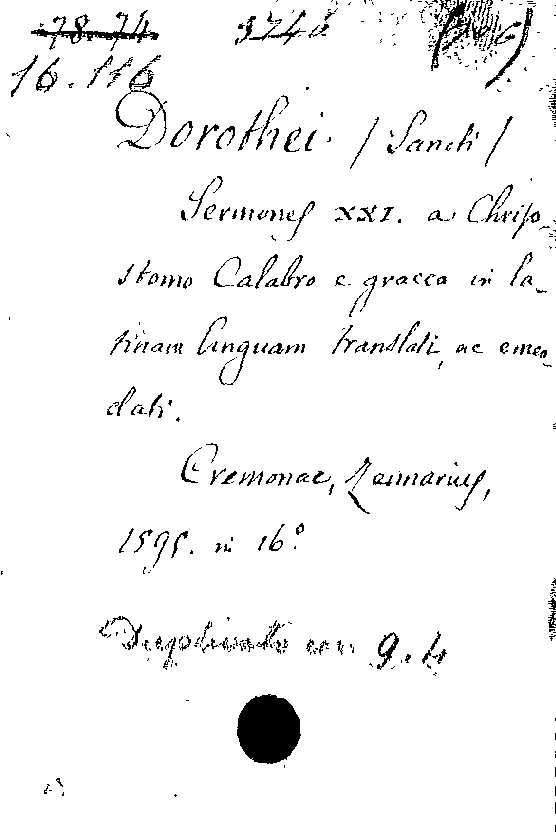 78.74 324a
16.116
Dorothei / Sancti /
Sermones XXI. a Chriso-
stomo Calabro e graeca in la-
tinam linguam translati, ac emen-
dati.
Cremonae, Zannarius,
1595. in 16°
Duplicato con 9.4